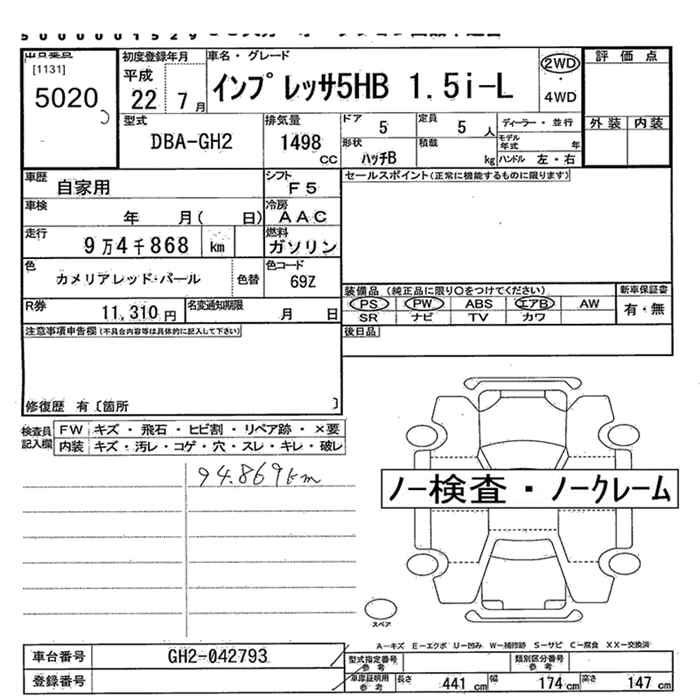 5000001529
出品番号
[1131]
5020
初度登録年月
平成
22 7月
車名・グレード
インプレッサ5HB 1.5i-L
2WD
・
4WD
評価点
外装 内装
型式
DBA-GH2
排気量
1498
cc
ドア 5
定員 5 人
ディーラー・並行
形状 ハッチB
積載 kg
モデル年式 年
ハンドル 左・右
車歴 自家用
シフト F5
セールスポイント(正常に機能するものに限ります)
車検 年 月( 日)
冷房 AAC
走行 9万4千868 km
燃料 ガソリン
色 カメリアレッド・パール 色替
色コード 69Z
装備品 (純正品に限り○をつけてください)
新車保証書
PS PW ABS エアB AW
有・無
SR ナビ TV カワ
R券 11,310円
名変通知期限 月 日
後日品
注意事項申告欄(不具合内容等は具体的に記入して下さい)
修復歴 有〔箇所 〕
検査員記入欄
FW キズ・飛石・ヒビ割・リペア跡・×要
内装 キズ・汚レ・コゲ・穴・スレ・キレ・破レ
94.869km
ノー検査・ノークレーム
スペア
A-キズ E-エクボ U-凹み W-補修跡 S-サビ C-腐食 XX-交換済
車台番号 GH2-042793
型式指定番号 参考
類別区分番号 参考
登録番号
車庫証明用 参考
長さ 441cm 幅 174cm 高さ 147cm